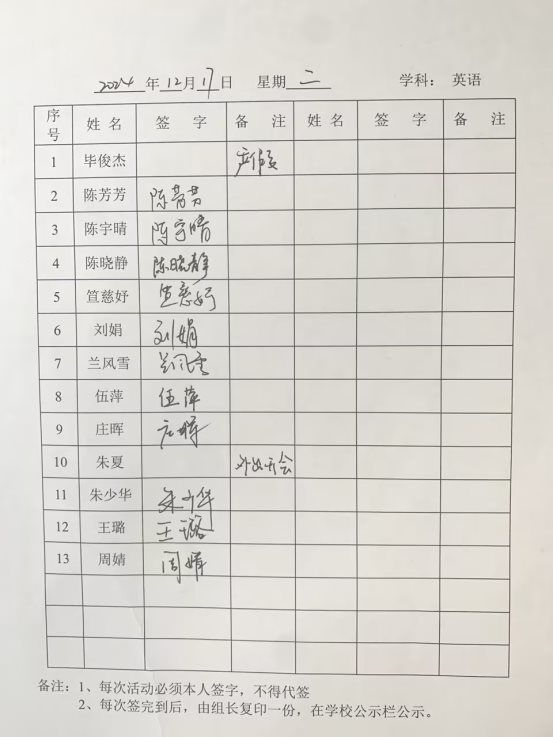 2024 年 12 月 17 日 星期 二 学科： 英语
序号 姓 名 签 字 备 注 姓 名 签 字 备 注
1 毕俊杰 产假
2 陈芳芳 陈芳芳
3 陈宇晴 陈宇晴
4 陈晓静 陈晓静
5 笪慈妤 笪慈妤
6 刘娟 刘娟
7 兰风雪 兰风雪
8 伍萍 伍萍
9 庄晖 庄晖
10 朱夏 外出开会
11 朱少华 朱少华
12 王璐 王璐
13 周婧 周婧
备注：1、每次活动必须本人签字，不得代签
2、每次签完到后，由组长复印一份，在学校公示栏公示。